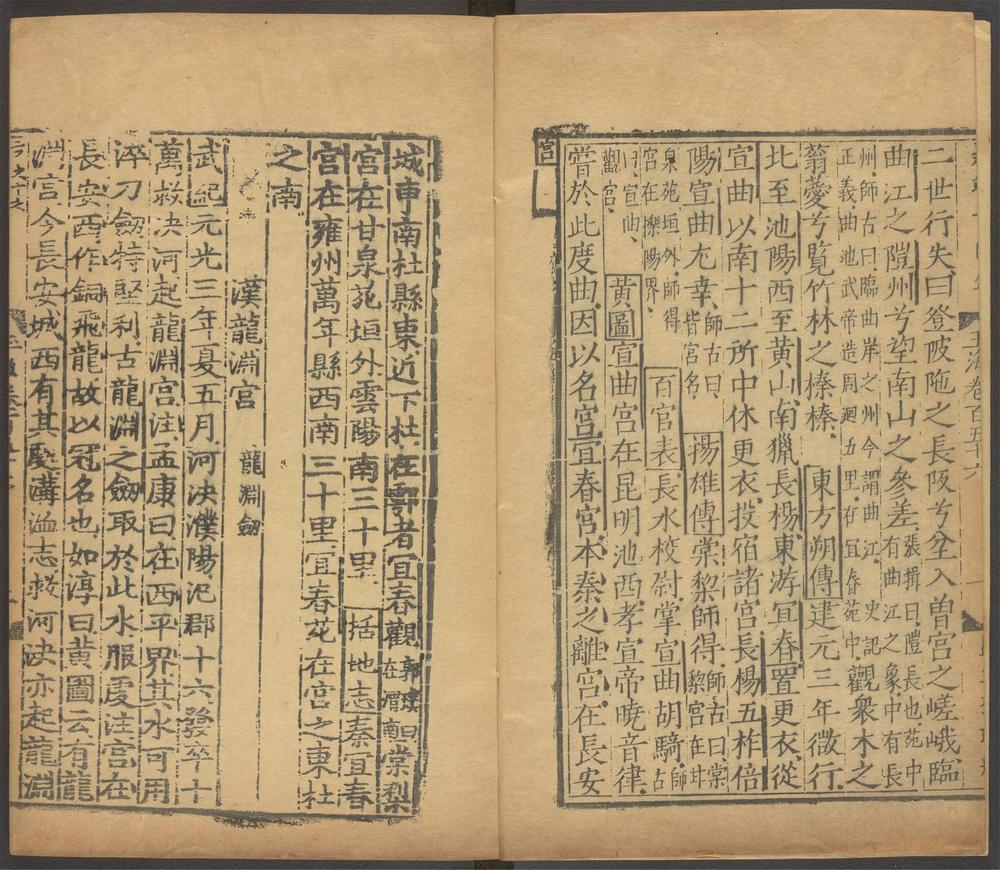 玉海卷百五十六
二世行失曰登陂陁之長阪兮坌入曽宫之嵯峨臨
曲江之隑州兮望南山之參差張揖曰隑長也苑中有曲江之象中有長
州師古曰臨曲岸之州今謂曲江史記正義曲池武帝造周廻五里在宜春苑中觀衆木之
蓊薆兮覧竹林之榛榛東方朔傳建元三年微行
北至池陽西至黄山南獵長楊東游宜春置更衣從
宣曲以南十二所中休更衣投宿諸宫長楊五柞倍
陽宣曲尤幸師古曰皆宫名揚雄傳棠黎師得師古曰棠黎宫在甘
泉苑垣外師得宫在櫟陽界百官表長水校尉掌宣曲胡騎師古
曰宣曲觀宫黄圖宣曲宫在昆明池西孝宣帝曉音律
嘗於此度曲因以名宫宜春宫本秦之離宫在長安
城東南杜縣東近下杜在鄠者宜春觀郭璞曰在渭南棠梨
宫在甘泉苑垣外雲陽南三十里括地志秦宜春
宫在雍州萬年縣西南三十里宜春苑在宫之東杜
之南
漢龍淵宫龍淵劔
武紀元光三年夏五月河决濮陽汜郡十六發卒十
萬救决河起龍淵宫注孟康曰在西平界其水可用
淬刀劔特堅利古龍淵之劔取於此水服䖍注宫在
長安西作銅飛龍故以冠名也如淳曰黄圖云有龍
淵宫今長安城西有其䖏溝洫志救河决亦起龍淵